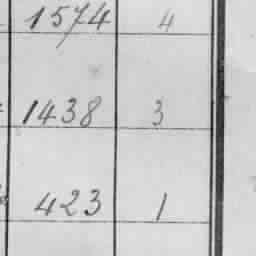 1574 4
1438 3
423 1